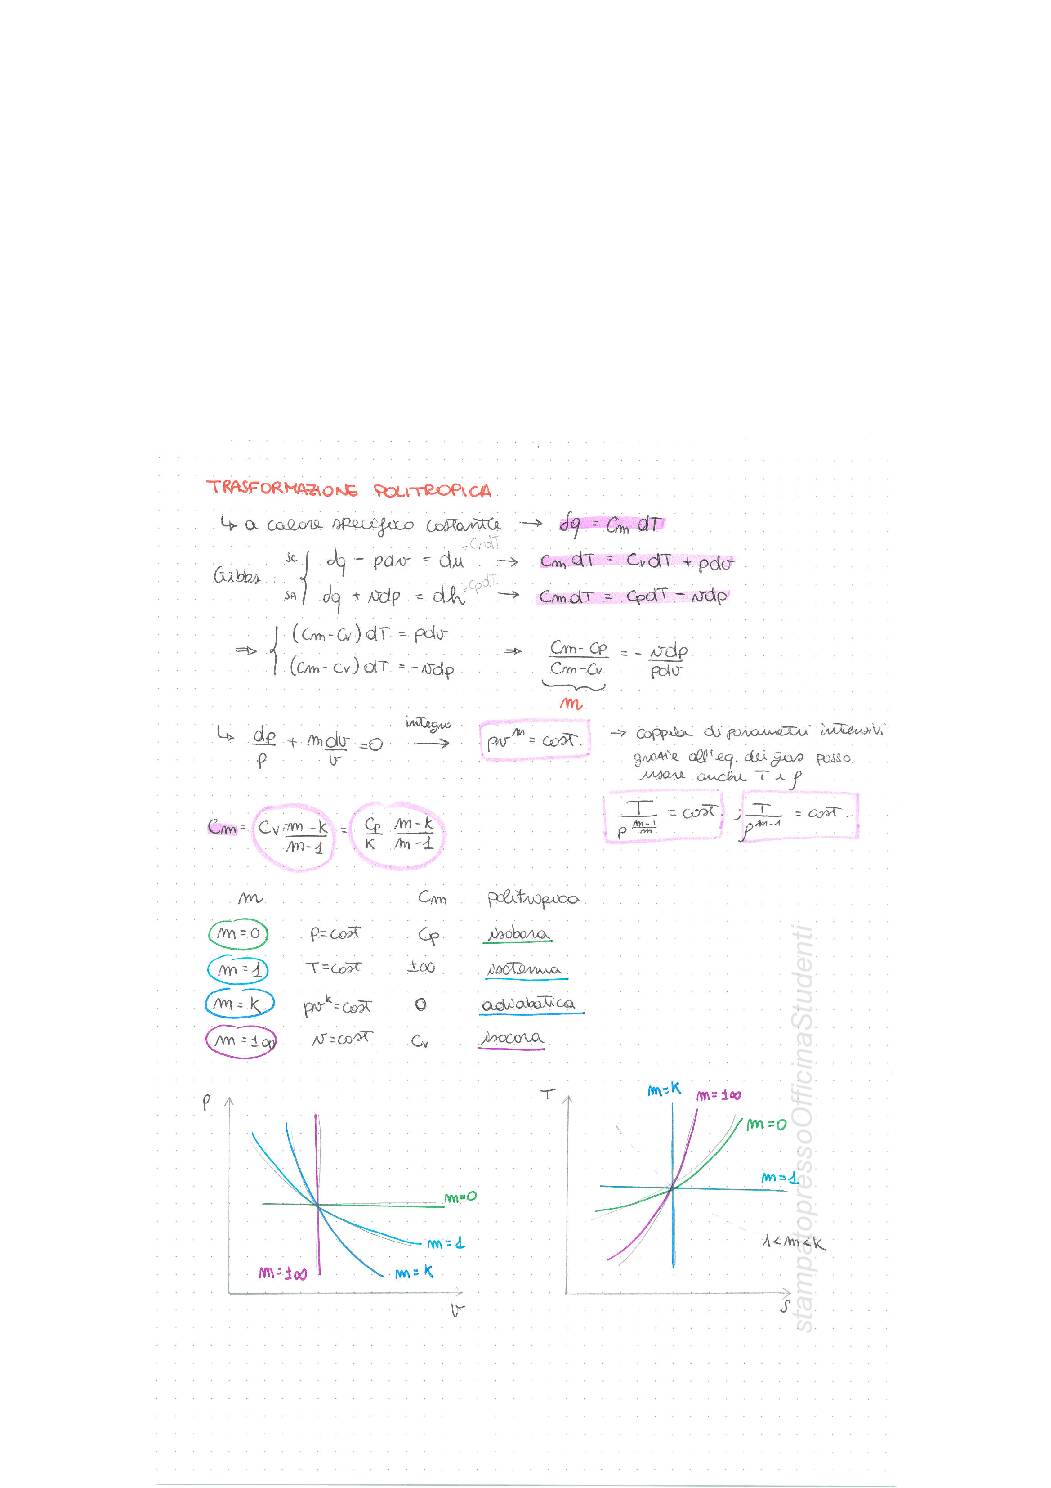 TRASFORMAZIONE POLITROPICA
↳ a calore specifico costante → dq = Cm dT
Gibbs
SC { dq - pdv = du =CvdT → CmdT = CvdT + pdv
SA { dq + vdp = dh =CpdT → CmdT = CpdT - vdp
⇒ { (Cm-Cv)dT = pdv
(Cm-Cv)dT = -vdp
⇒ (Cm-Cp)/(Cm-Cv) = - vdp/pdv
m
↳ dp/p + m dv/v = 0 integro → pv^m = cost.
→ coppia di parametri intensivi
grazie all'eq. dei gas posso
usare anche T e ρ
T/p^((m-1)/m) = cost. ; T/ρ^(m-1) = cost.
Cm = Cv (m-k)/(m-1) = Cp/k (m-k)/(m-1)
m Cm politropica
m=0 p=cost Cp isobara
m=1 T=cost ±∞ isoterma
m=k pv^k=cost 0 adiabatica
m=±∞ v=cost Cv isocora
P
m=0
m=1
m=±∞ m=k
v
T
m=k m=±∞
m=0
m=1
1<m<k
S
stampatopressoOfficinaStudenti